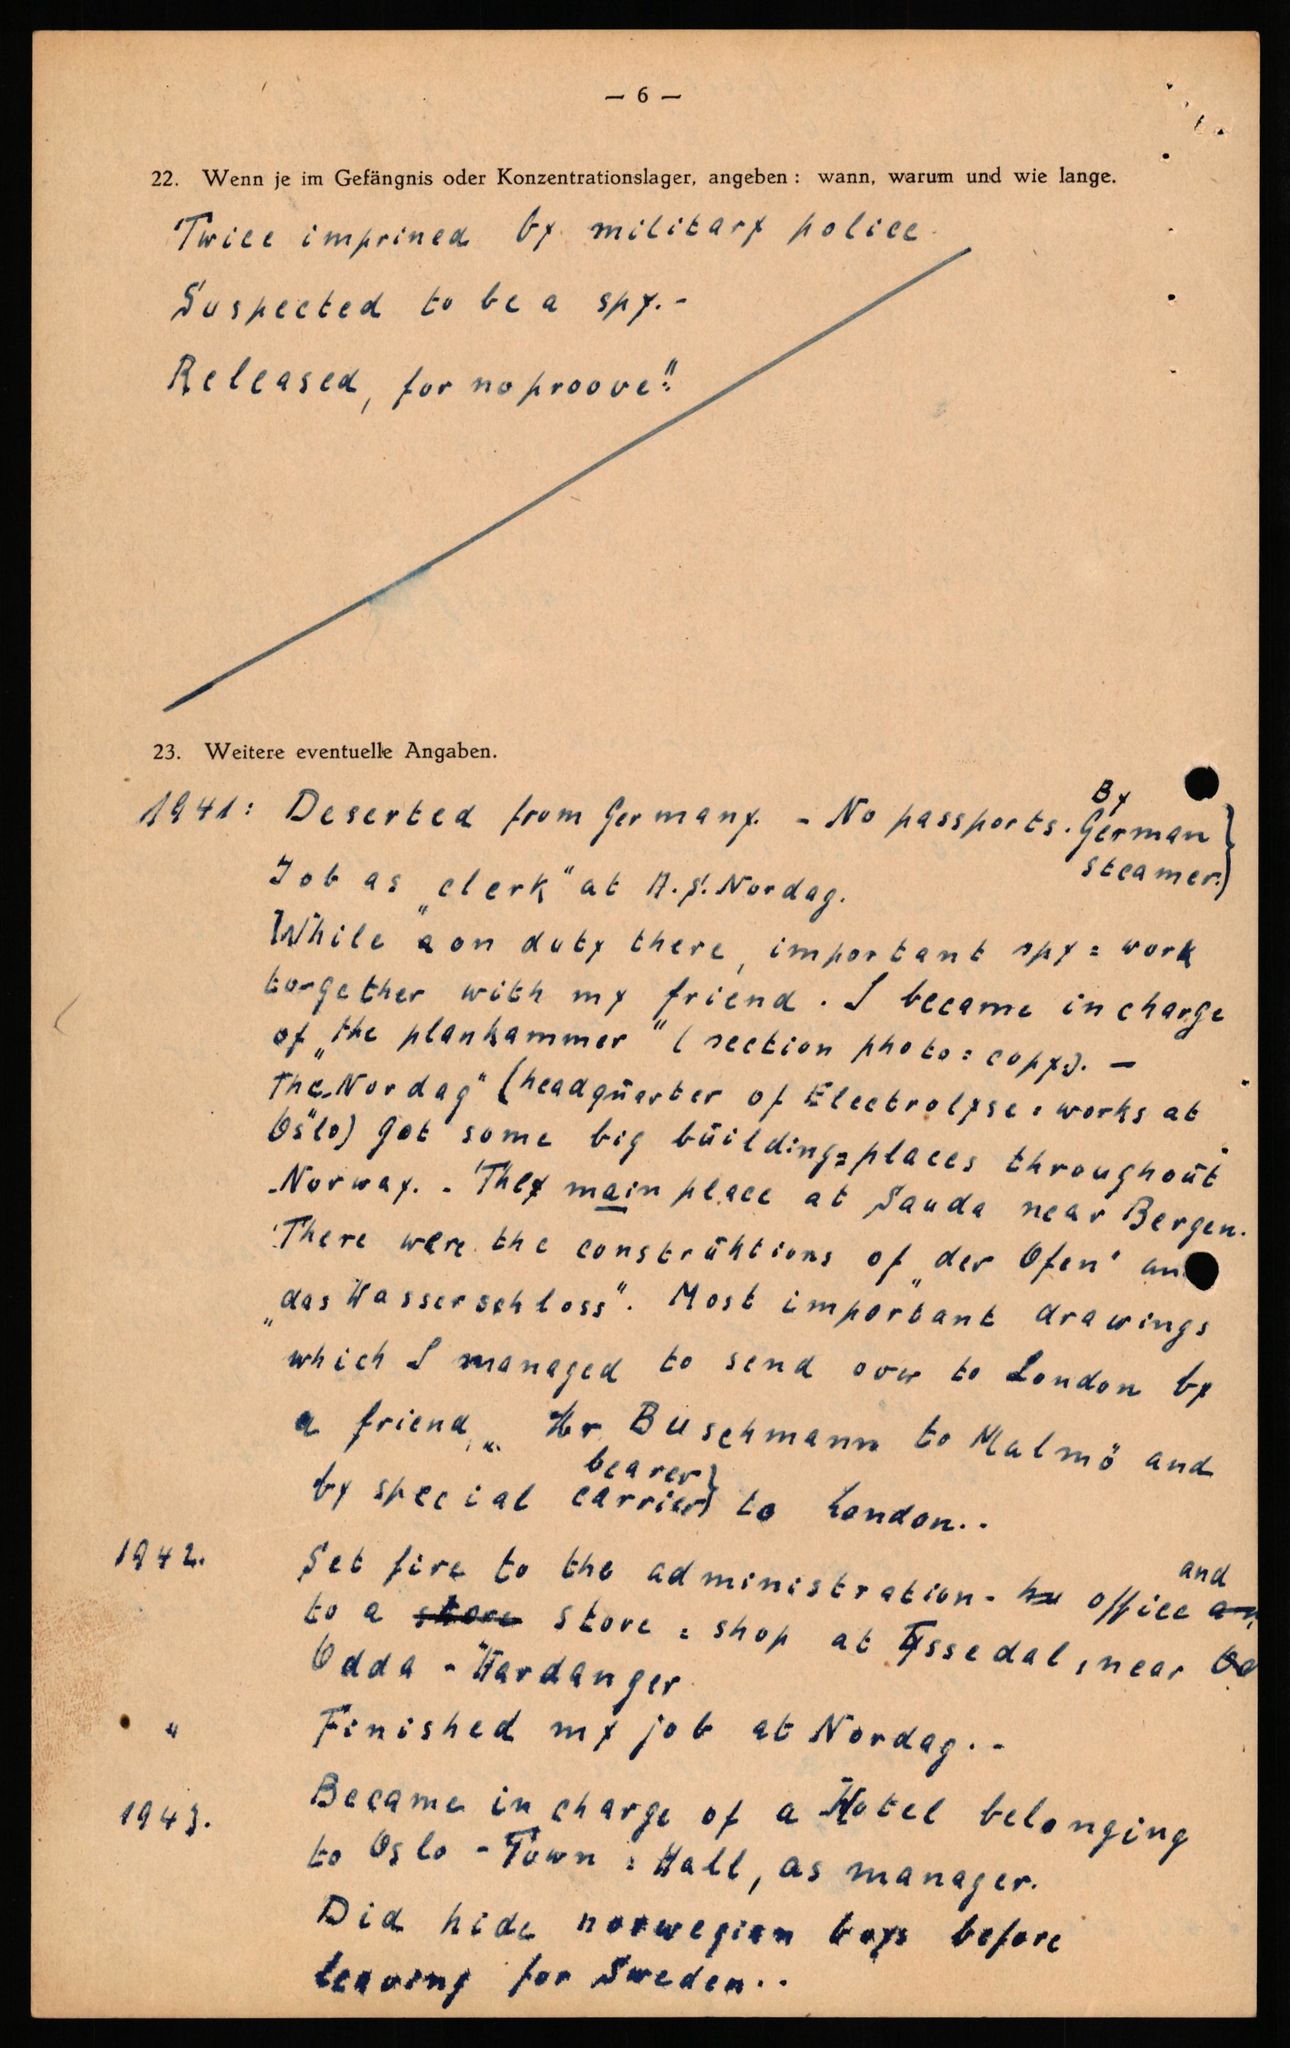 — 6 —
22. Wenn je im Gefängnis oder Konzentrationslager, angeben: wann, warum und wie lange.
Twice imprined by military police
Suspected to be a spy.-
Released, for no proove."
23. Weitere eventuelle Angaben.
1941: Deserted from Germany. - No passports. By German
steamer.)
Job as „clerk" at A.S. Nordag.
While a on duty there, important spy = work
torgether with my friend. I became in charge
of „the plankammer" (section photo = copy). —
The „Nordag" (headquarter of Electrolyse = works at
Oslo) got some big building = places throughout
Norway. - They main place at Sauda near Bergen.
There were the construktions of „der Ofen" an
„das Wasserschloss". Most important drawings
which I managed to send over to London by
a friend, „ Hr. Buschmann to Malmö and
by special carrier) bearer) to London..
1942. Set fire to the administration - office and
to a store store = shop at Tyssedal, near
Odda - Hardanger
" Finished my job at Nordag. -
1943. Became in charge of a Hotel belonging
to Oslo - Town = Hall, as manager.
Did hide norwegian boys before
leaving for Sweden..